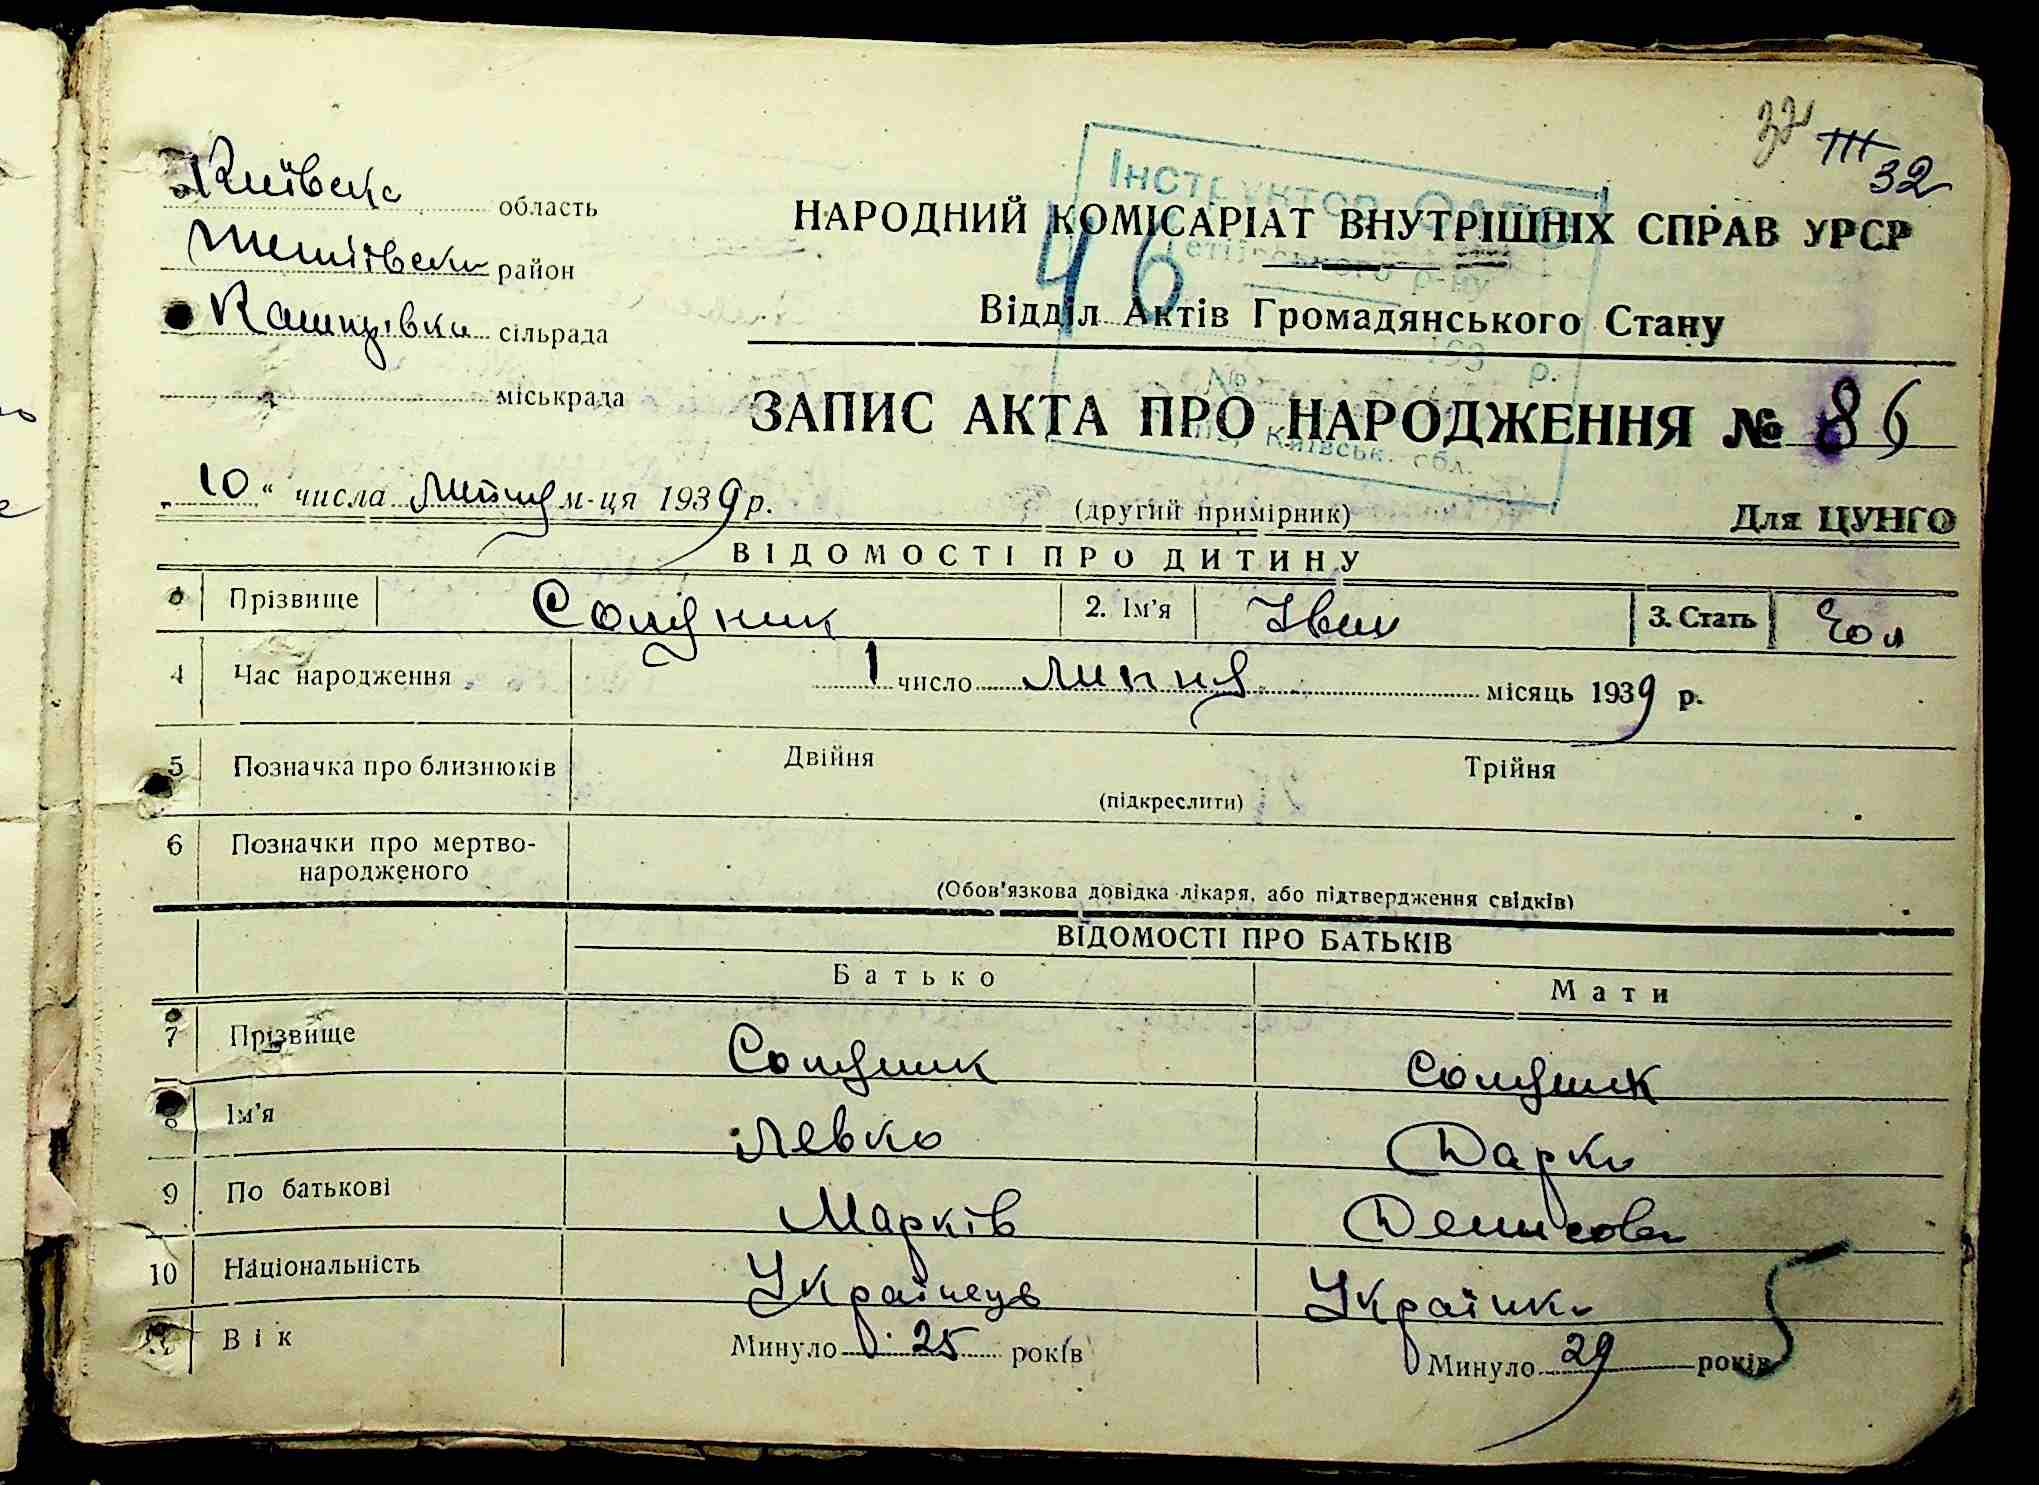 32
III 32
Київська область
Тетіївськи район
Кашперівка сільрада
міськрада
Інструктор
Тетіївського р-ну
46
193 р.
№
Київськ. обл.
НАРОДНИЙ КОМІСАРІАТ ВНУТРІШНІХ СПРАВ УРСР
Відділ Актів Громадянського Стану
ЗАПИС АКТА ПРО НАРОДЖЕННЯ № 86
„10“ числа липня м-ця 1939 р.
(другий примірник) Для ЦУНГО
ВІДОМОСТІ ПРО ДИТИНУ
Прізвище Солдник 2. Ім'я Іван 3. Стать Чол
4 Час народження 1 число липня місяць 1939 р.
5 Позначка про близнюків Двійня Трійня
(підкреслити)
6 Позначки про мертво-
народженого
(Обов'язкова довідка лікаря, або підтвердження свідків)
ВІДОМОСТІ ПРО БАТЬКІВ
Батько Мати
7 Прізвище
8 Ім'я Левко Дарка
9 По батькові Марків Денисова
10 Національність Українець Українка
11 Вік Минуло 25 років Минуло 29 років
5